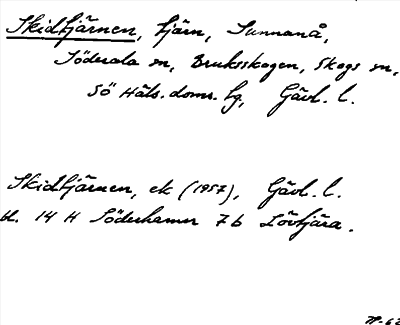 Skidtjärnen, tjärn, Sunnanå,
Söderala sn, Bruksskogen, Skogs sn,
Sö Häls. doms. hg, Gävl. l.
Skidtjärnen, ek (1957), Gävl. l.
bl. 14 H Söderhamn 7 b Lövtjära.